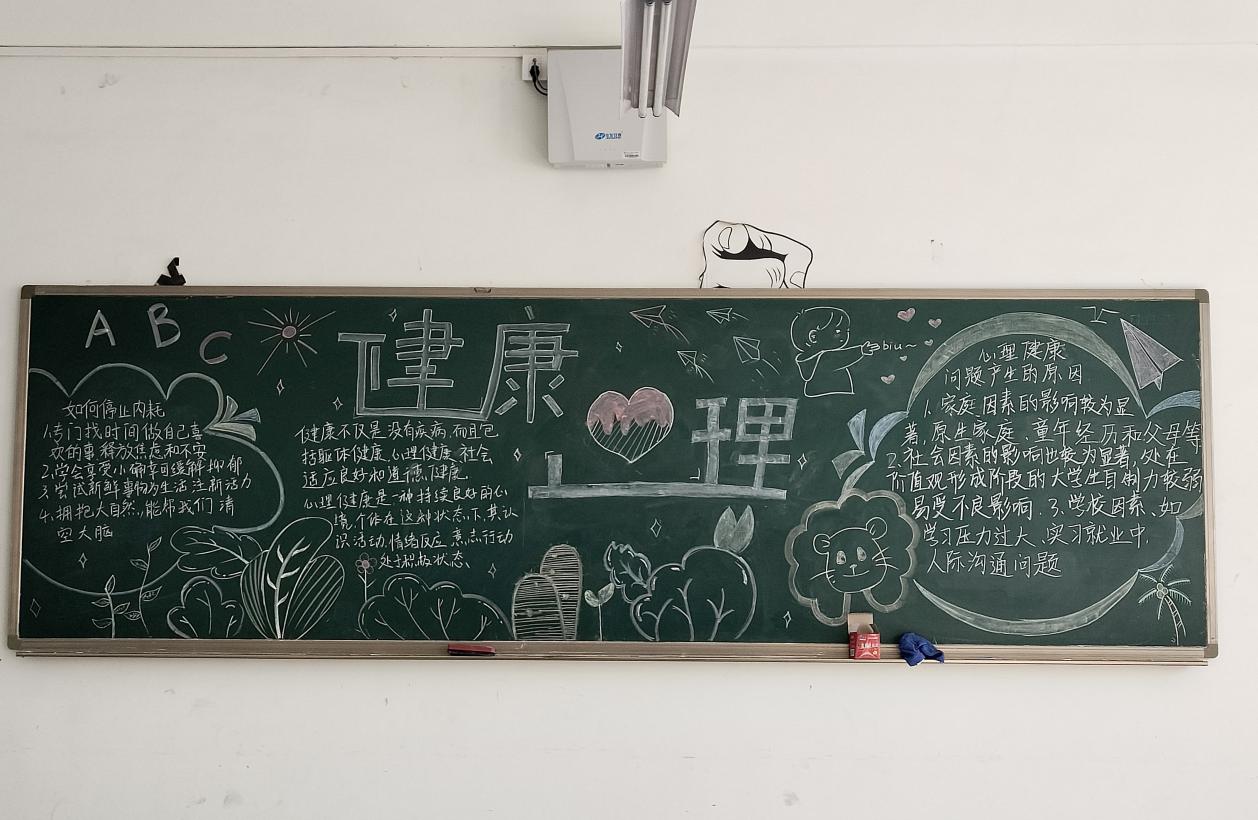 A B C
健康
心理
biu~
如何停止内耗
1.专门找时间做自己喜
欢的事 释放焦虑和不安
2.学会享受小确幸可缓解抑郁
3.尝试新鲜事物为生活注新活力
4.拥抱大自然,能帮我们清
空大脑
健康不仅是没有疾病,而且包
括躯体健康、心理健康、社会
适应良好和道德健康.
心理健康是一种持续良好的心
境,个体在这种状态下,其认
识活动、情绪反应、意志行动
处于积极状态、
心理健康
问题产生的原因
1.家庭因素的影响较为显
著,原生家庭、童年经历和父母等
2.社会因素的影响也较为显著,处在
价值观形成阶段的大学生自制力较弱
易受不良影响.3.学校因素、如
学习压力过大、实习就业中,
人际沟通问题